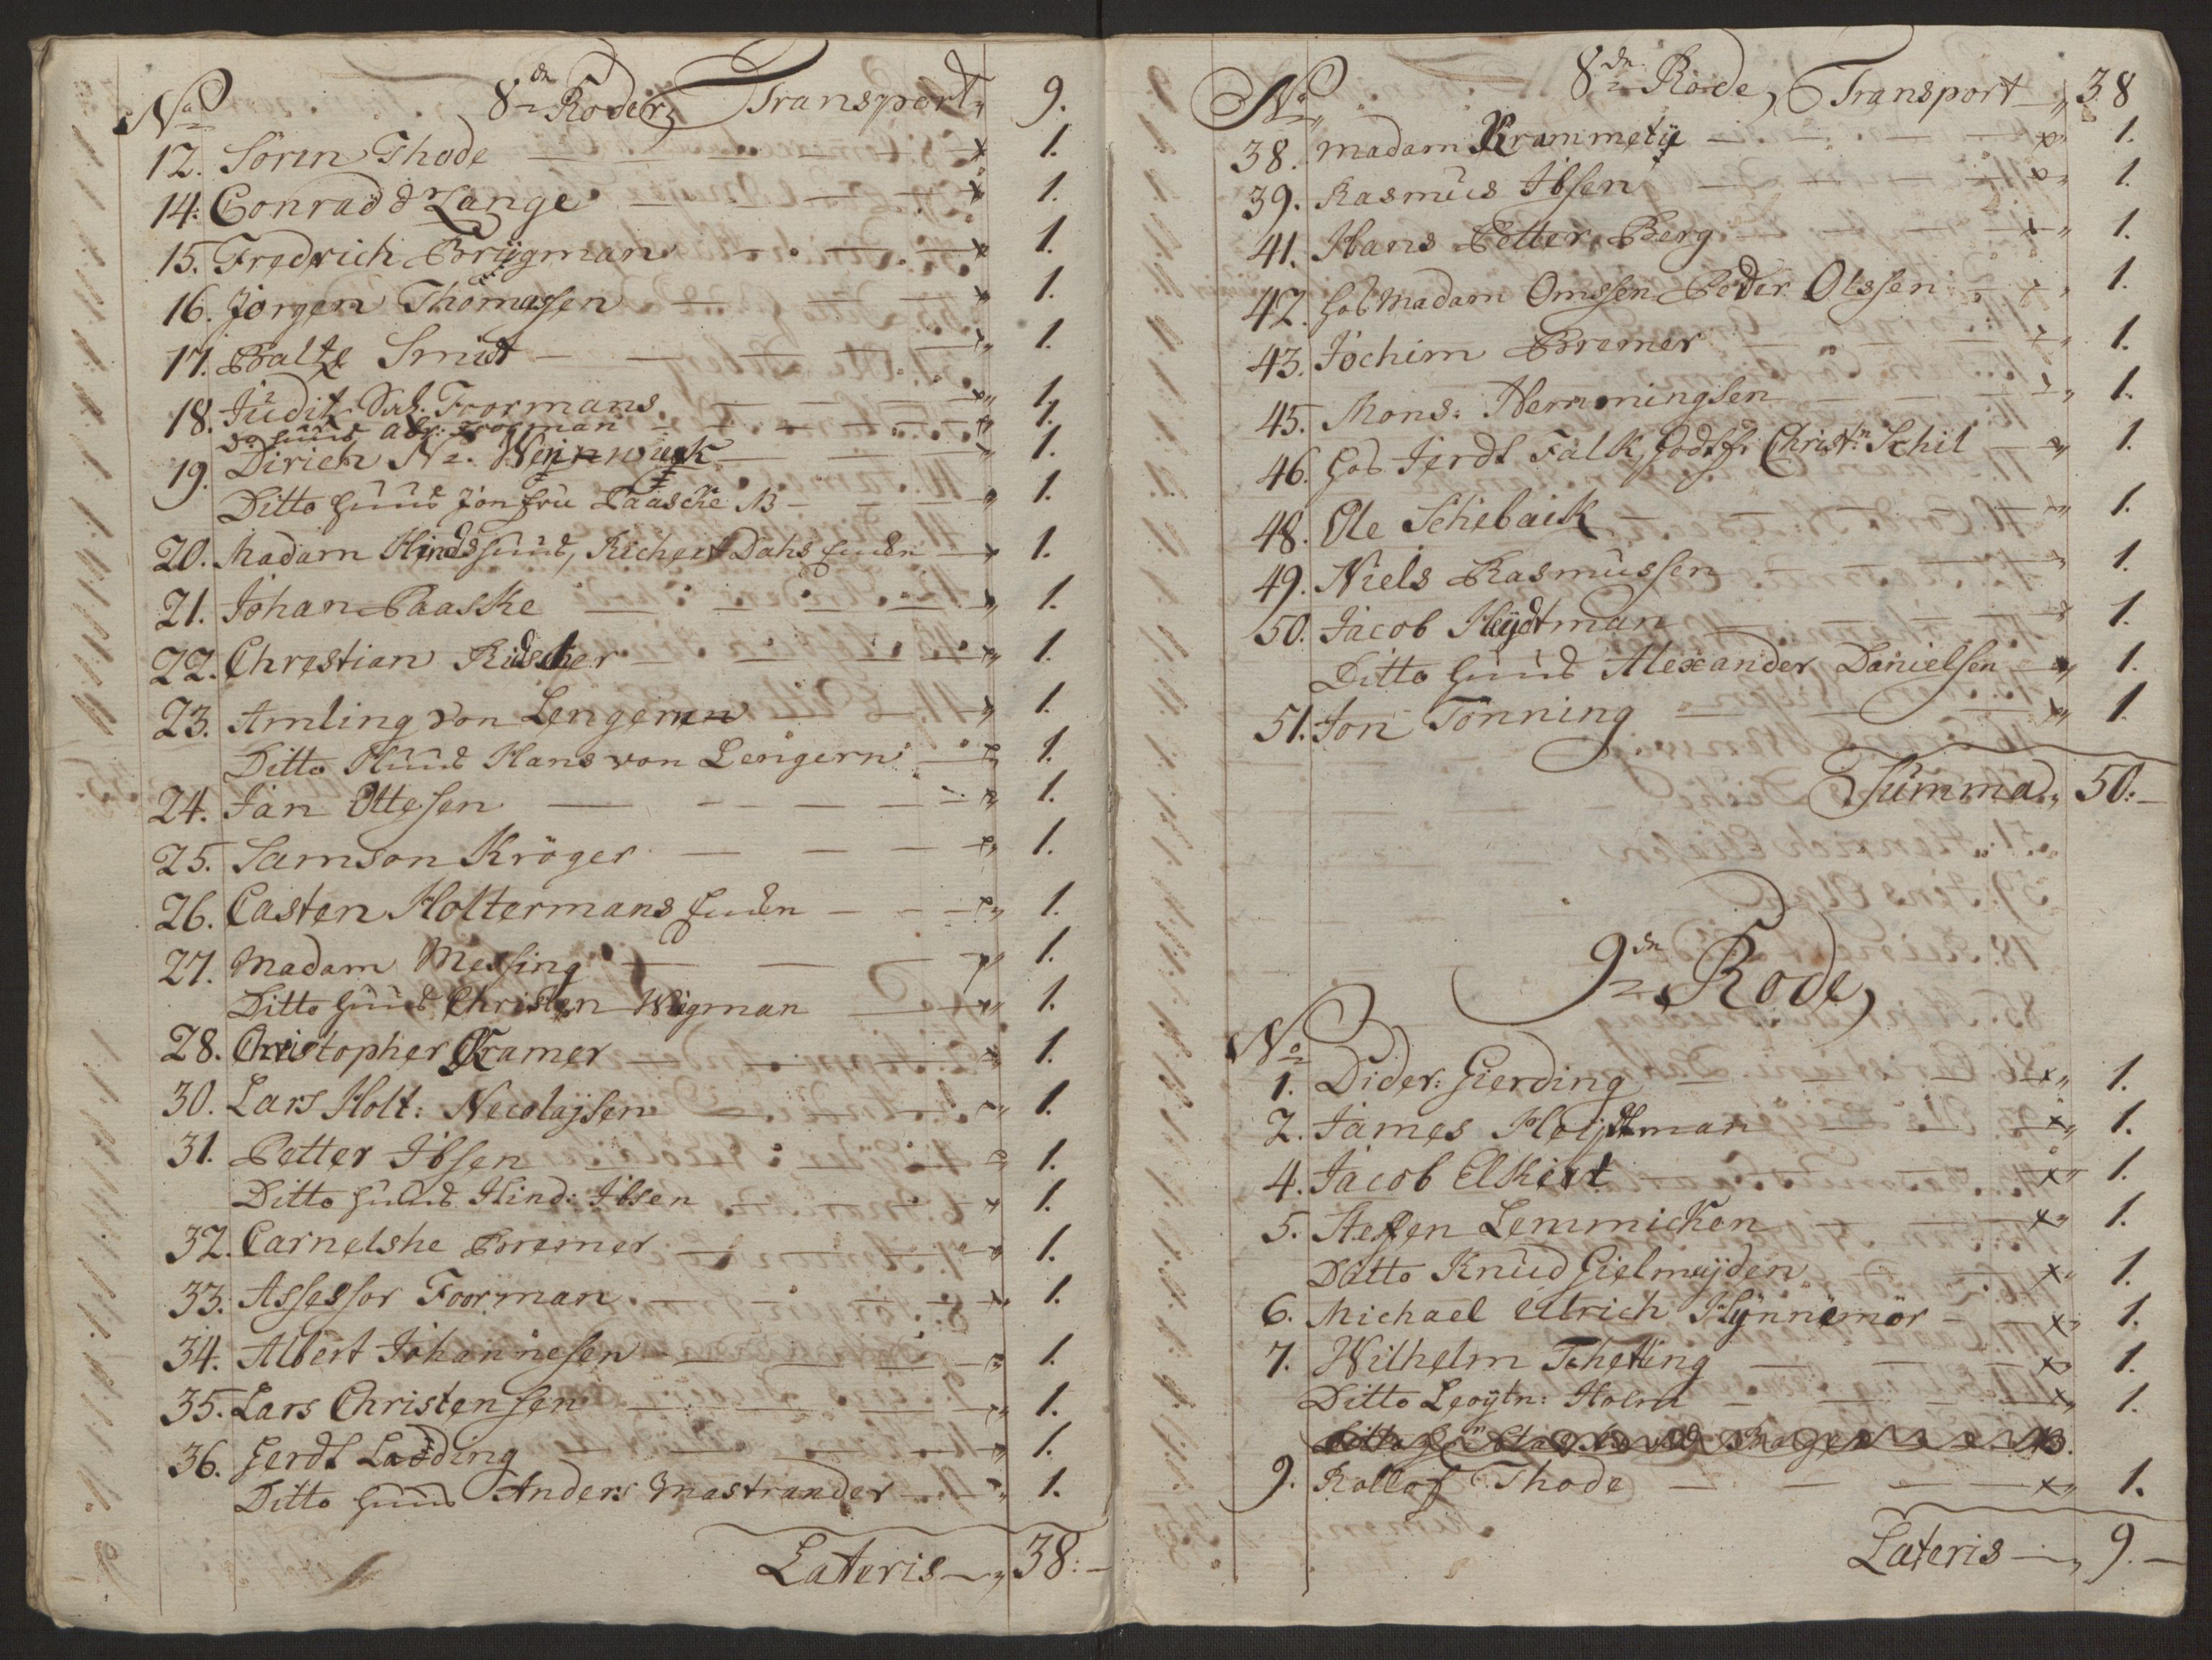 No 8de Roder, Transport 9.
12. Sören Thode x 1.
14: Conrad Lange x 1.
15. Fredrich Brügman x 1.
16. Jörgen Thomassen x 1.
17. Baltz Smüt x 1.
18. Judit Foormans x 1.
do huus Foorman 1.
19. Dirich 1.
Ditto huus Jonfru Paasche 1.
20. Madam Hinds huus, Richert Dahs Enken 1.
21. Johan Paaske 1.
22. Chrestian 1.
23. Amling von Lengeren 1.
Ditto Huus Hans von Lengern 1.
24. Jan Ottesen 1.
25. Samson Kröger 1.
26. Casten Holtermans Enken 1.
27. Madam Messing 1.
Ditto huus Christen Wegman 1.
28. Christopher Kramer 1.
30. Lars Holt: Necolajsen 1.
31. Petter Ibsen 1.
Ditto huus Hind: Ibsen 1.
32. Carnelshe Bremer 1.
33. Assessor Foorman 1.
34. Albert Johannesen 1.
35. Lars Christensen 1.
36. Gerdt Lading 1.
Ditto huus Anders Mastrander 1.
Lateris 38:
No 8de Rode, Transport 38
38. Madam x 1.
39. Rasmus Ibsen x 1.
41. Hans Petter Berg x 1.
42. hos Madam Omssen Peder Olssen 1.
43. Jochim Bremer 1.
45. Mons: Hemmingsen 1.
46. hos Jerdt Falk, Christn: Schil 1.
48. Ole Schebaik 1.
49. Niels Rasmussen 1.
50. Jacob Heydtman 1.
Ditto huus Alexander Danielsen 1.
51. Jon Tonning 1.
Summa 50:
9de Rode,
No
1. Dider: Gierding x 1.
2. James Heytman x 1.
4. Jacob Elkert x 1.
5. Steffen Lemmicken x 1.
Ditto Knud Gielmuyden x 1.
6. Michael Ulrich Hynnemör x 1.
7. Wilhelm Scheting x 1.
Ditto Leoytn: Holm x 1.
9. Rollof Thode x 1.
Lateris 9.